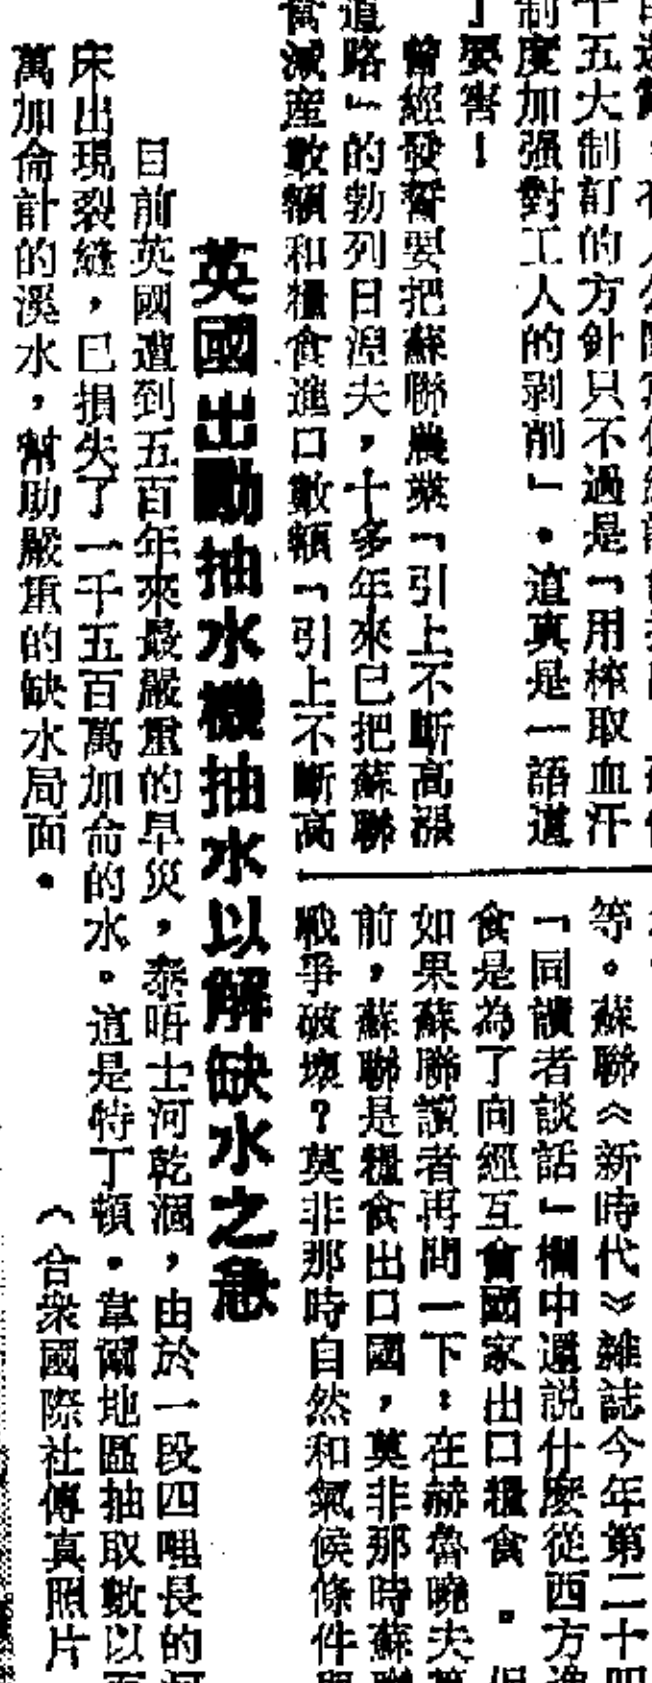 十五大制訂的方針只不過是「用榨取血汗
制度加强對工人的剥削」。這真是一語道
』要害！
曾經發誓要把蘇聯農業「引上不斷高漲
道路」的勃列日湼夫，十多年來已把蘇聯
減產數額和糧食進口數額「引上不斷高
等。蘇聯《新時代》雜誌今年第二十四
「同讀者談話」欄中還説什麽從西方進
食是為了向經互會國家出口糧食。但
如果蘇聯讀者再問一下：在赫魯曉夫
前，蘇聯是糧食出口國，莫非那時蘇聯
戰爭破壞？莫非那時自然和氣候條件
英國出動抽水機抽水以解缺水之急
目前英國遭到五百年來最嚴重的旱災，泰晤士河乾涸，由於一段四哩長的河
床出現裂縫，已損失了一千五百萬加侖的水。這是特丁頓·韋爾地區抽取數以百
萬加侖計的溪水，幫助嚴重的缺水局面。
（合衆國際社傳真照片